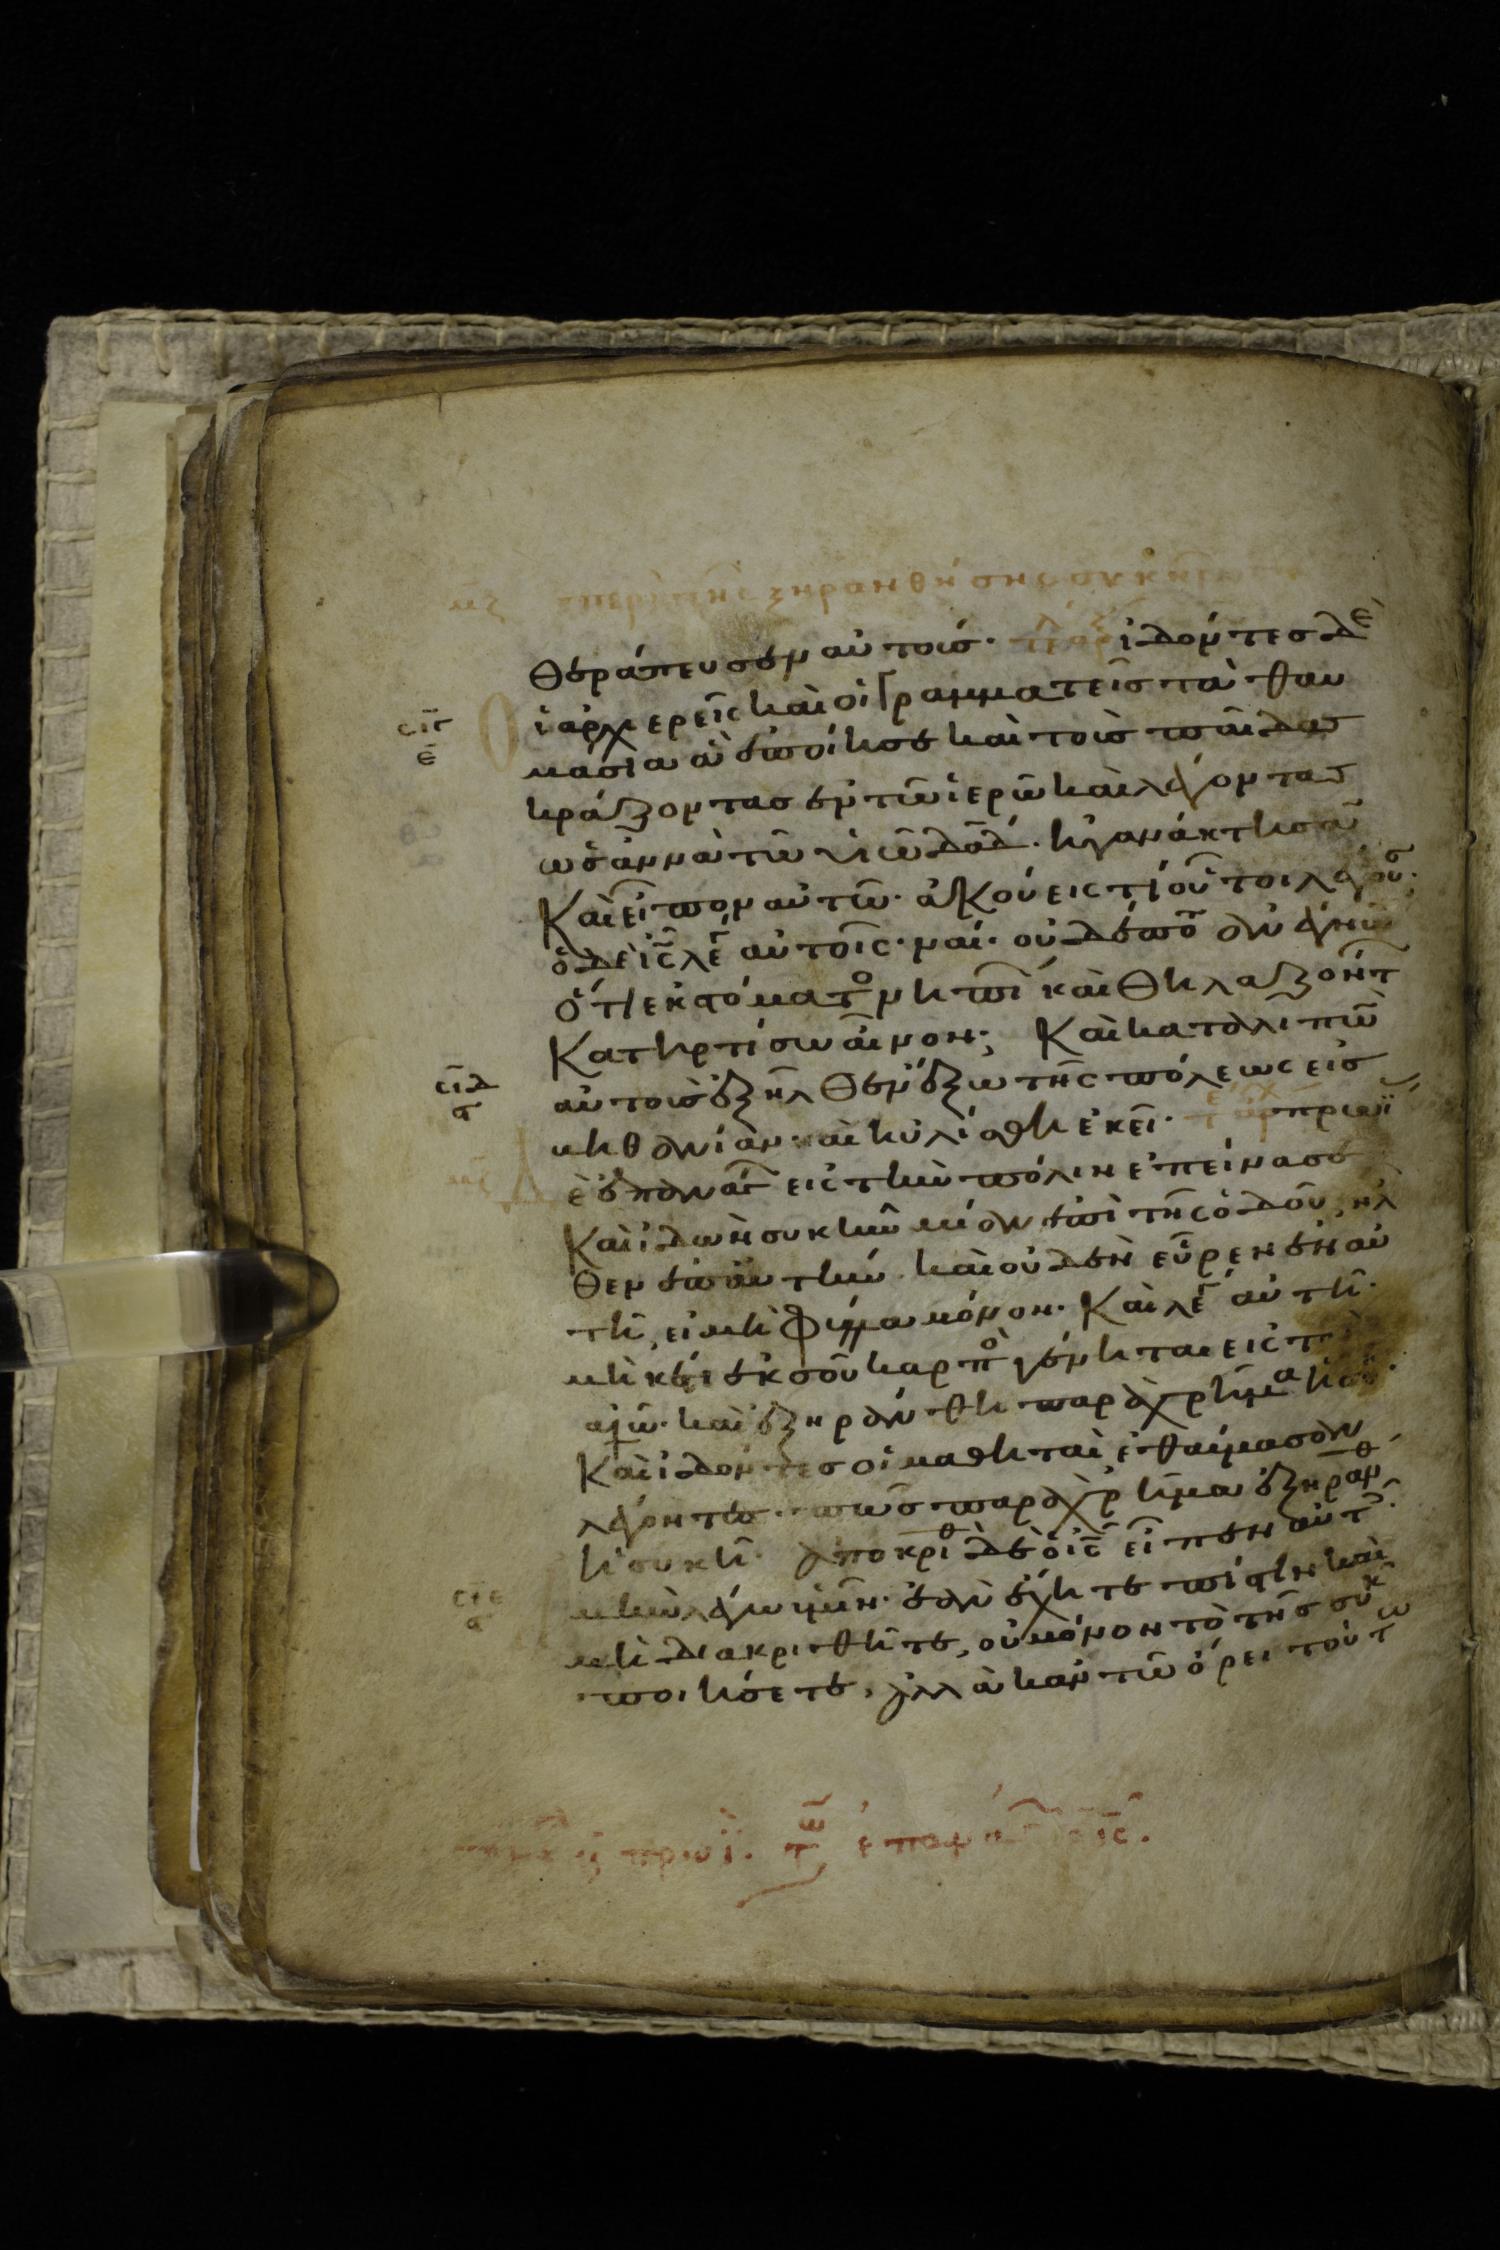 περὶ τῆς ξηρανθήσης συκῆς
θεράπευσεν αὐτούς. ἰδόντες δὲ
ἱ ἀρχιερεῖς καὶ οἱ γραμματεῖς τὰ θαυ
μάσια ἃ ἐποίησε καὶ τοὺς παῖδας
κράζοντας ἐν τῶ ἱερῶ καὶ λέγοντας
ὡσαννὰ τῶ υἱῶ δαδ. ἠγανάκτησαν
Καὶ εἶπον αὐτῶ. ἀκούεις τί οὗτοι λέγουσ;
ὁ δὲ ις λέγει αὐτοῖς. ναί. οὐδέποτε ἀνέγνω
ὅτι ἐκ στόματος νηπί καὶ θηλαζόντ
Κατηρτίσω αἶνον; Καὶ καταλιπὼν
αὐτοὺς ἐξῆλθεν ἔξω τῆς πόλεως εἰς
βηθανίαν καὶ ηὐλίσθη ἐκεῖ. πρωΐ
ἐπανάγ εἰς τὴν πόλιν ἐπείνασε
Καὶ ἰδὼν συκὴν μίαν ἐπὶ τῆς ὁδοῦ, ἦλ
θεν ἐπ αὐτήν. καὶ οὐδὲν εὗρεν ἐν αὐ
τῆ, εἰ μὴ φύλλα μόνον. Καὶ λέγει αὐτῆ.
μηκέτι ἐκ σοῦ καρπὸ γένηται εἰς τὸν
αἰῶ. καὶ ἐξηράνθη παραχρῆμα ἡ συ
Καὶ ἰδόντες οἱ μαθηταὶ ἐθαύμασαν
λέγοντες. πῶς παραχρῆμα ἐξηράνθ
ἡ συκῆ. ἀποκριθ δὲ ὁ ις εἶπεν αὐτ
ἀμὴν λέγω ὑμῖν. ἐὰν ἔχητε πίστιν καὶ
μὴ διακριθῆτε, οὐ μόνον τὸ τῆς συκ
ποιήσετε, ἀλλὰ κἂν τῶ ὄρει τούτω
σιγ
ε
σιδ
α
σιε
α
πρωΐ. ἐπανάγ ὁ ις.